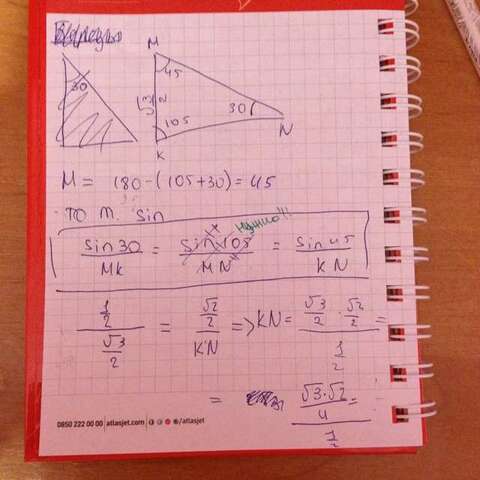 M
30
45
√3/2
30
105
N
K
M = 180-(105+30)=45
то т. sin
нужно!!
sin 30/MK = sin 105/MN = sin 45/KN
1/2/√3/2 = √2/2/KN => KN = √3/2 · √2/2/1/2 =
= √3·√2/4/1/2 =
0850 222 00 00 | atlasjet.com | /atlasjet